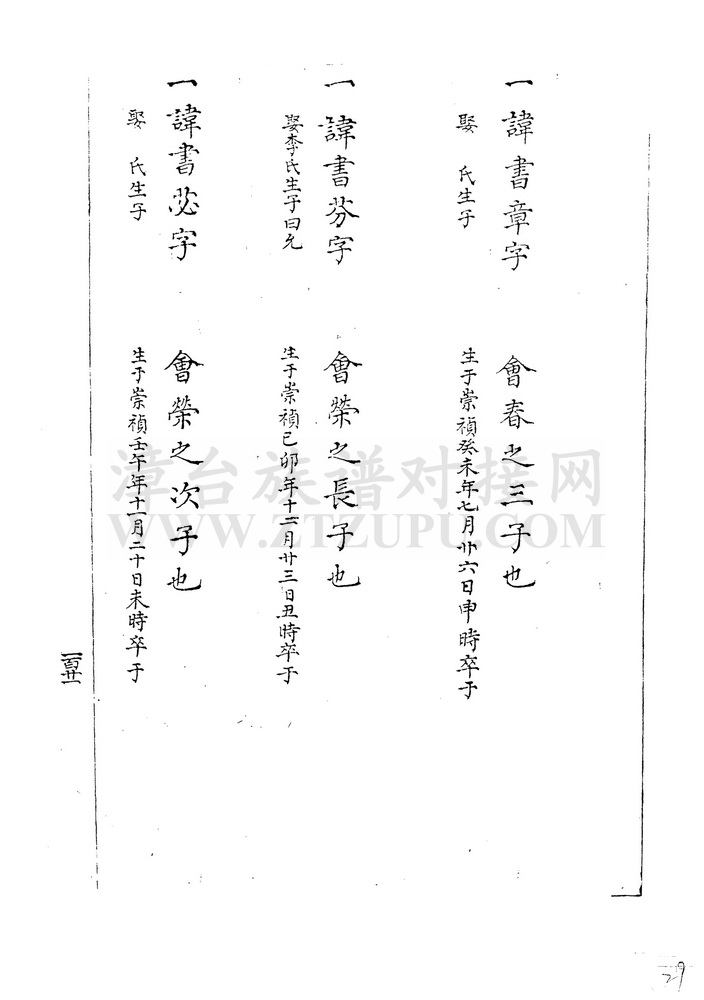 一諱書章字　會春之三子也
娶　氏生子　生于崇禎癸未年七月廿六日申時卒于
一諱書芬字　會榮之長子也
娶李氏生子曰允　生于崇禎己卯年十一月廿三日丑時卒于
一諱書苾字　會榮之次子也
娶　氏生子　生于崇禎壬午年十一月二十日未時卒于
一百廿一
漳台族谱对接网
WWW.ZTZUPU.COM
29